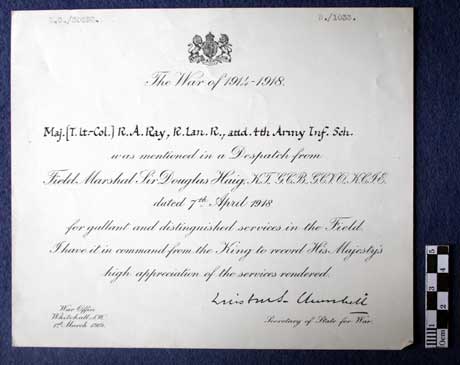 The War of 1914-1918.
Maj. (T. Lt.-Col.) R. A. Ray, R. Lan. R., and 4th Army Inf. Sch.
was mentioned in a Despatch from
Field Marshal Sir Douglas Haig, K.T. G.C.B. G.C.V.O. K.C.I.E.
dated 7th April 1918
for gallant and distinguished services in the Field.
I have it in command from the King to record His Majesty's
high appreciation of the services rendered.
Winston S. Churchill
War Office
Whitehall, S.W.
Secretary of State for War.
1st March 1919.
0cm 1 2 3 4 5